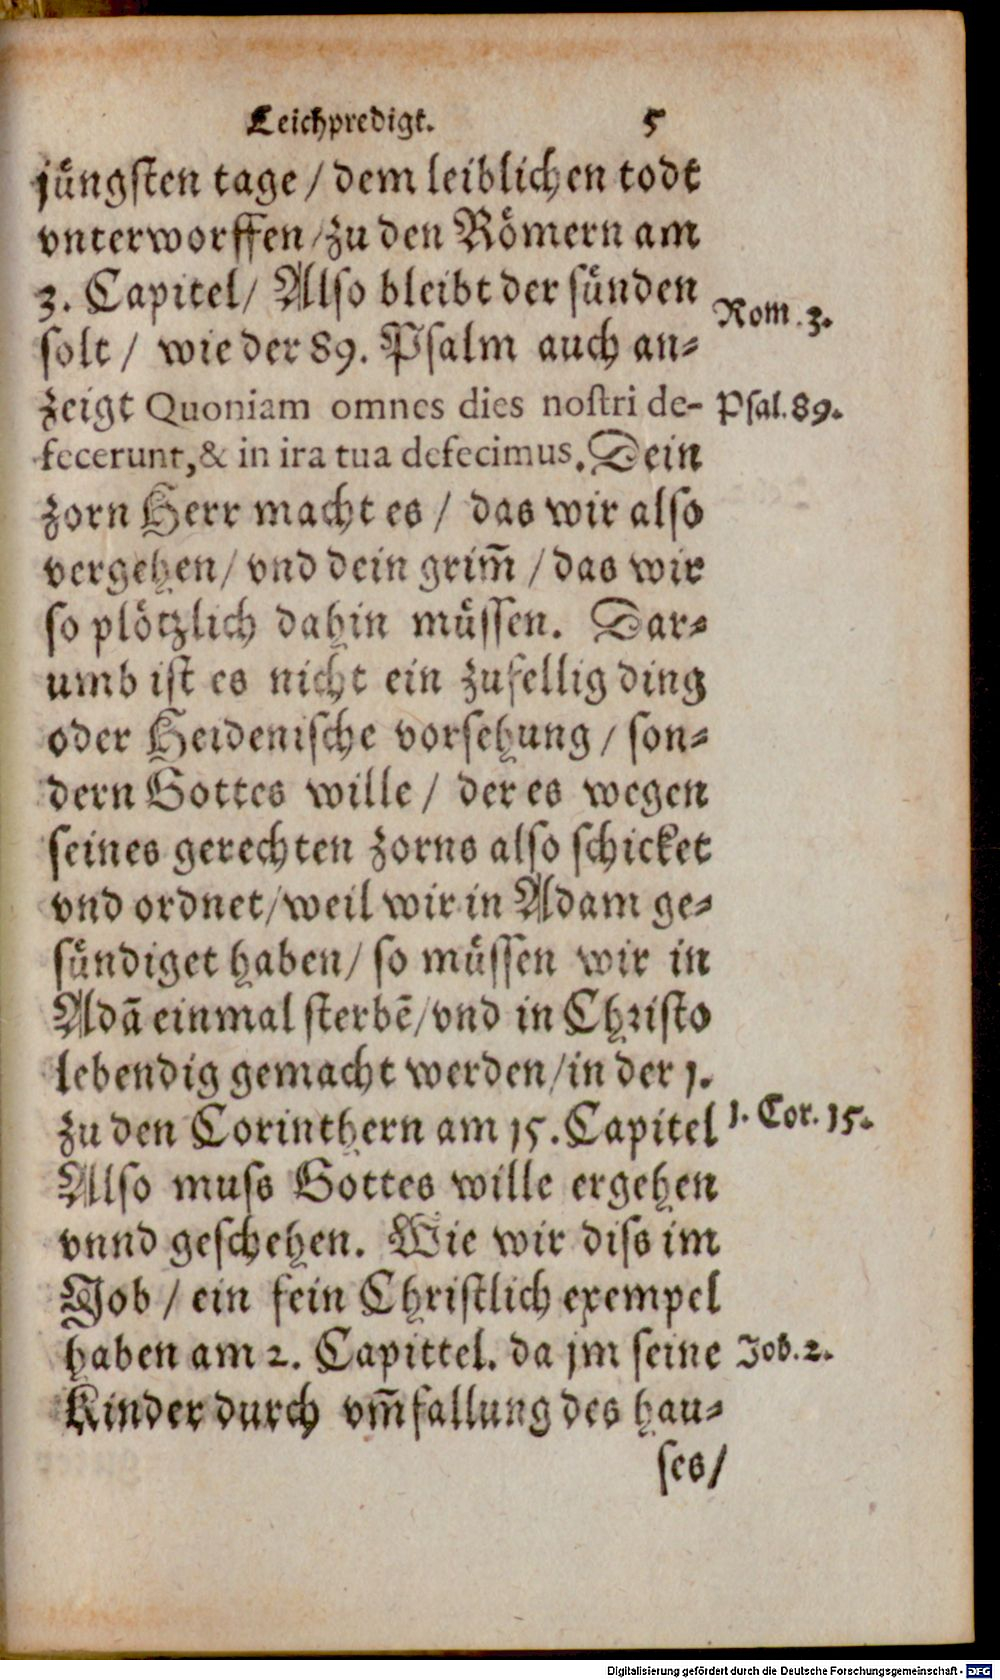 Leichpredigt. 5
jüngsten tage / dem leiblichen todt
vnterworffen / zu den Römern am
3. Capitel / Also bleibt der sünden
Rom. 3.
solt / wie der 89. Psalm auch an⸗
zeigt Quoniam omnes dies nostri de-
Psal. 89.
fecerunt, & in ira tua defecimus. Dein
zorn Herr macht es / das wir also
vergehen / vnd dein grim̃ / das wir
so plötzlich dahin müssen. Dar⸗
umb ist es nicht ein zufellig ding
oder Heidenische vorsehung / son⸗
dern Gottes wille / der es wegen
seines gerechten zorns also schicket
vnd ordnet / weil wir in Adam ge⸗
sündiget haben / so müssen wir in
Adã einmal sterbẽ / vnd in Christo
lebendig gemacht werden / in der 1.
zu den Corinthern am 15. Capitel
1. Cor. 15.
Also muss Gottes wille ergehen
vnnd geschehen. Wie wir diss im
Job / ein fein Christlich exempel
haben am 2. Capittel. da jm seine
Job. 2.
Kinder durch vm̃fallung des hau⸗
ses /
Digitalisierung gefördert durch die Deutsche Forschungsgemeinschaft - DFG